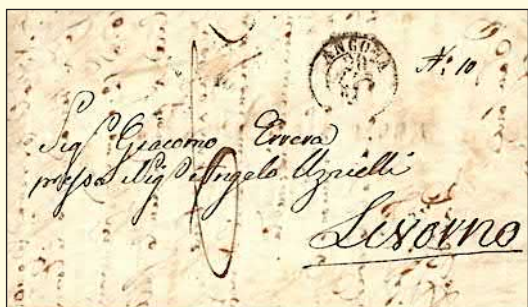 ANCONA
N.º 10
Sigr Giacomo Errera
presso Sigr Angelo Uzielli
Livorno